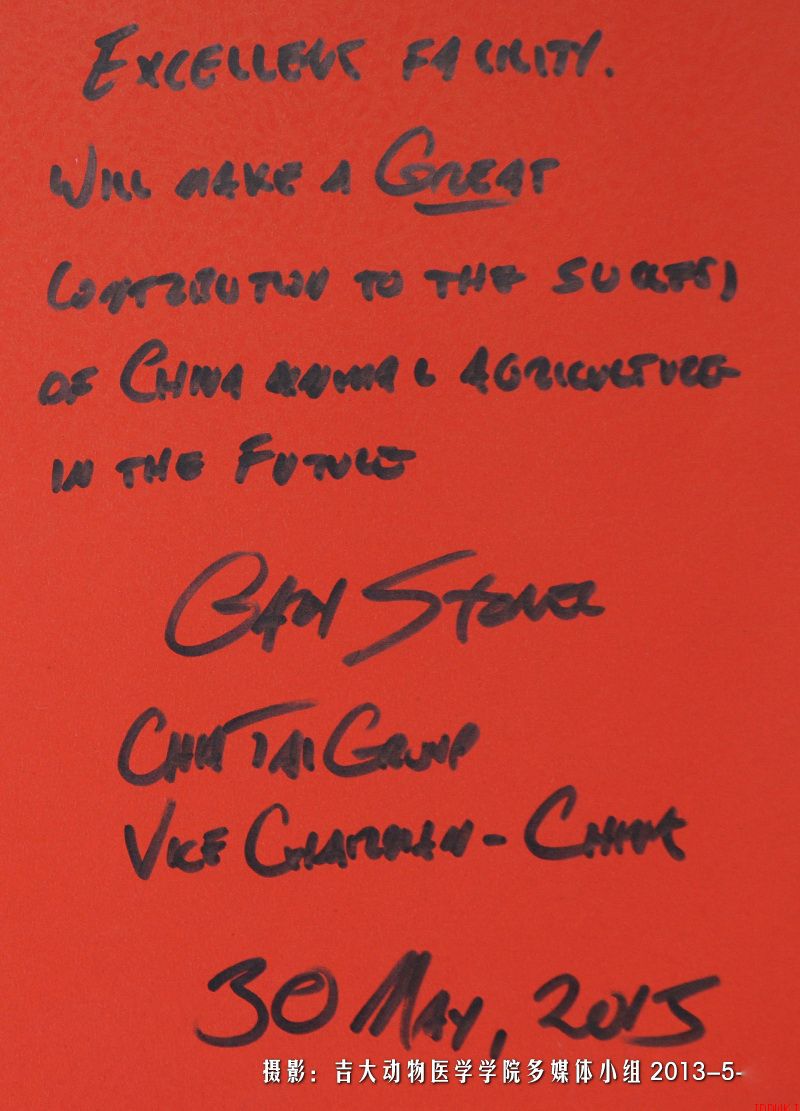 EXCELLENT FACILITY.
WILL MAKE A GREAT
CONTRIBUTION TO THE SUCCESS
OF CHINA ANIMAL AGRICULTURE
IN THE FUTURE
CHIA TAI GROUP
VICE CHAIRMAN - CHINA
30 MAY, 2013
摄影：吉大动物医学学院多媒体小组 2013-5-